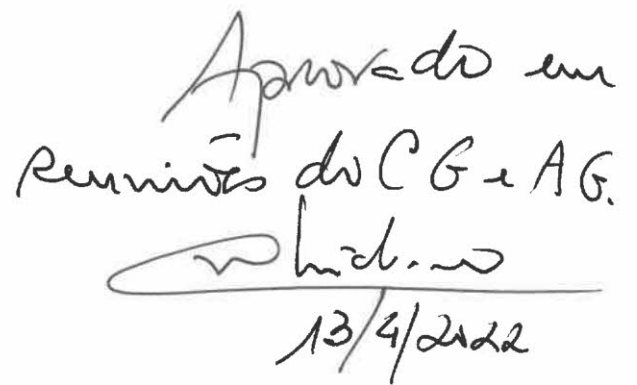 Aprovado em
reuniões do CG e AG.
13/4/2022